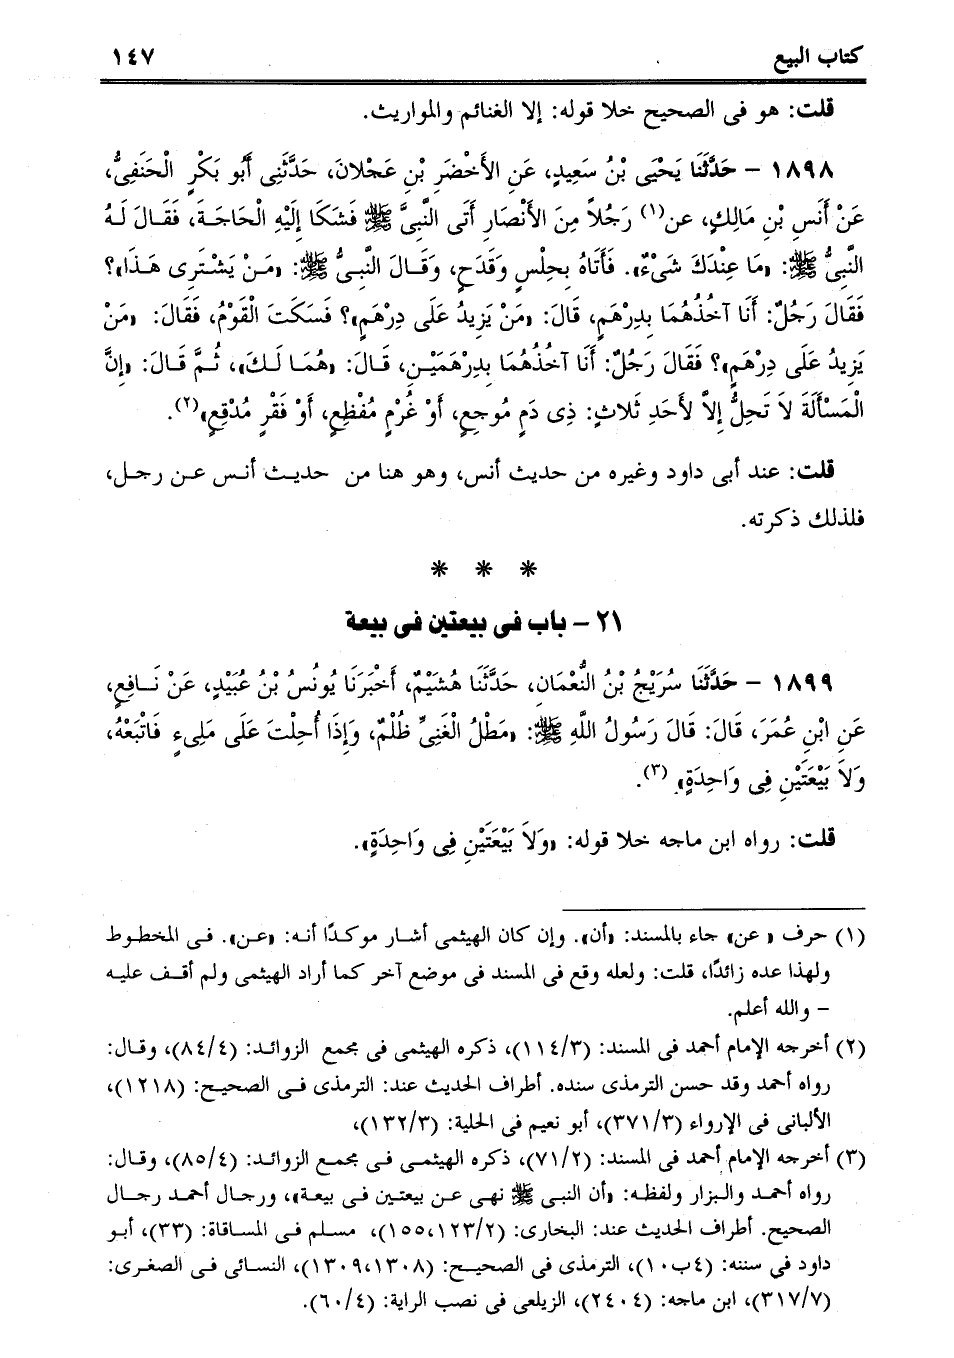 كتاب البيع ١٤٧
قلت: هو فى الصحيح خلا قوله: إلا الغنائم والمواريث.
١٨٩٨ - حَدَّثَنَا يَحْيَى بْنُ سَعِيدٍ، عَنِ الأَخْضَرِ بْنِ عَجْلانَ، حَدَّثَنِى أَبُو بَكْرٍ الْحَنَفِىُّ،
عَنْ أَنَسِ بْنِ مَالِكٍ، عن(١) رَجُلاً مِنَ الأَنْصَارِ أَتَى النَّبِىَّ ﷺ فَشَكَا إِلَيْهِ الْحَاجَةَ، فَقَالَ لَهُ
النَّبِىُّ ﷺ: «مَا عِنْدَكَ شَىْءٌ». فَأَتَاهُ بِحِلْسٍ وَقَدَحٍ، وَقَالَ النَّبِىُّ ﷺ: «مَنْ يَشْتَرِى هَذَا»؟
فَقَالَ رَجُلٌ: أَنَا آخُذُهُمَا بِدِرْهَمٍ، قَالَ: «مَنْ يَزِيدُ عَلَى دِرْهَمٍ»؟ فَسَكَتَ الْقَوْمُ، فَقَالَ: «مَنْ
يَزِيدُ عَلَى دِرْهَمٍ»؟ فَقَالَ رَجُلٌ: أَنَا آخُذُهُمَا بِدِرْهَمَيْنِ، قَالَ: «هُمَا لَكَ»، ثُمَّ قَالَ: «إِنَّ
الْمَسْأَلَةَ لاَ تَحِلُّ إِلاَّ لأَحَدِ ثَلاثٍ: ذِى دَمٍ مُوجِعٍ، أَوْ غُرْمٍ مُفْظِعٍ، أَوْ فَقْرٍ مُدْقِعٍ»(٢).
قلت: عند أبى داود وغيره من حديث أنس، وهو هنا من حديث أنس عن رجل،
فلذلك ذكرته.
* * *
٢١ - باب فى بيعتين فى بيعة
١٨٩٩ - حَدَّثَنَا سُرَيْجُ بْنُ النُّعْمَانِ، حَدَّثَنَا هُشَيْمٌ، أَخْبَرَنَا يُونُسُ بْنُ عُبَيْدٍ، عَنْ نَافِعٍ،
عَنِ ابْنِ عُمَرَ، قَالَ: قَالَ رَسُولُ اللَّهِ ﷺ: «مَطْلُ الْغَنِىِّ ظُلْمٌ، وَإِذَا أُحِلْتَ عَلَى مَلِىءٍ فَاتْبَعْهُ،
وَلاَ بَيْعَتَيْنِ فِى وَاحِدَةٍ» (٣).
قلت: رواه ابن ماجه خلا قوله: «وَلاَ بَيْعَتَيْنِ فِى وَاحِدَةٍ».
(١) حرف « عن» جاء بالمسند: «أن». وإن كان الهيثمى أشار موكدًا أنه: «عن». فى المخطوط
ولهذا عده زائدًا، قلت: ولعله وقع فى المسند فى موضع آخر كما أراد الهيثمى ولم أقف عليه
- والله أعلم.
(٢) أخرجه الإمام أحمد فى المسند: (١١٤/٣)، ذكره الهيثمى فى مجمع الزوائد: (٨٤/٤)، وقال:
رواه أحمد وقد حسن الترمذى سنده. أطراف الحديث عند: الترمذى فى الصحيح: (١٢١٨)،
الألبانى فى الإرواء (٣٧١/٣)، أبو نعيم فى الحلية: (١٣٢/٣)،
(٣) أخرجه الإمام أحمد فى المسند: (٧١/٢)، ذكره الهيثمى فى مجمع الزوائد: (٨٥/٤)، وقال:
رواه أحمد والبزار ولفظه: «أن النبى ﷺ نهى عن بيعتين فى بيعة»، ورجال أحمد رجال
الصحيح. أطراف الحديث عند: البخارى: (١٢٣/٢،١٥٥)، مسلم فى المساقاة: (٣٣)، أبو
داود فى سننه: (٤ب١٠)، الترمذى فى الصحيح: (١٣٠٨،١٣٠٩)، النسائى فى الصغرى:
(٣١٧/٧)، ابن ماجه: (٢٤٠٤)، الزيلعى فى نصب الراية: (٦٠/٤).